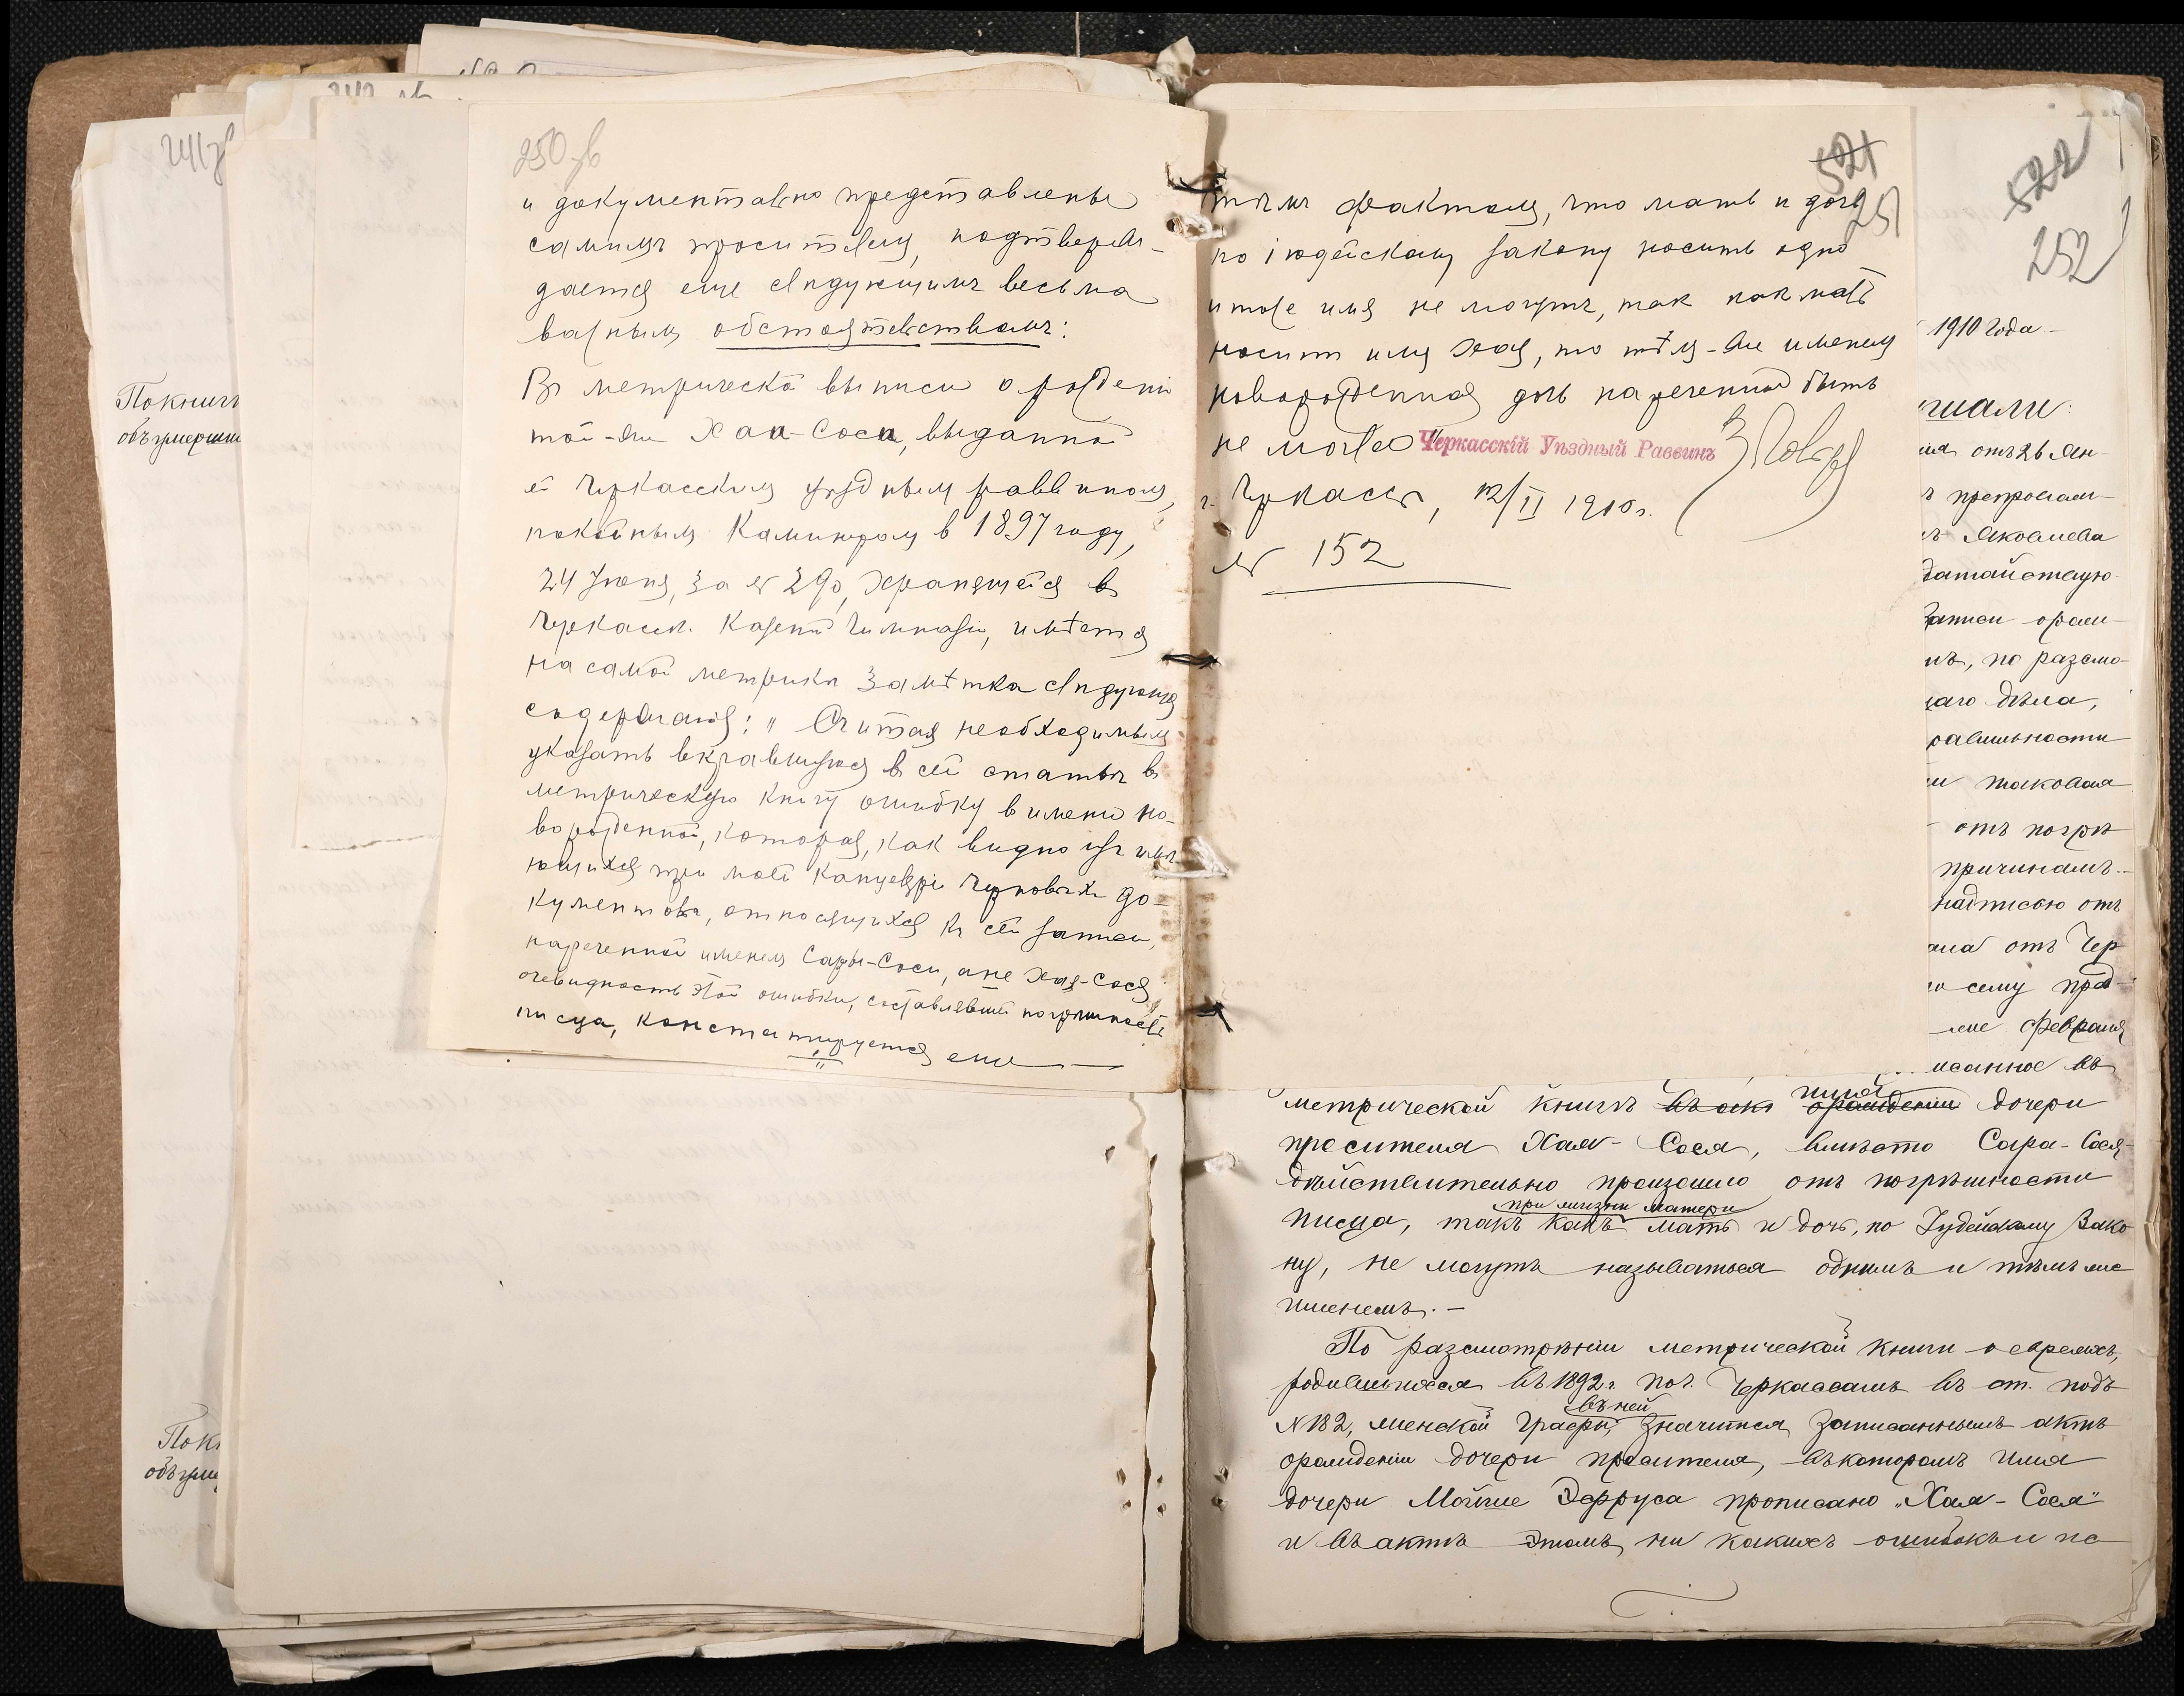 250 зв
и документально представлены
самимъ просителемъ, подтверж-
дается еще слѣдующимъ весьма
важнымъ обстоятельствомъ:
Въ метрической выписи о рожденіи
той-же Хаи-Соси, выданной
ей Черкасскимъ уѣзднымъ раввиномъ,
покойнымъ въ 1897 году,
24 Іюня, за № 290, хранящейся въ
Черкасск. Казенной Гимназіи, имѣется
на самой метрикѣ замѣтка слѣдующаго
содержанія: „Считая необходимымъ
указать вкравшуюся въ сей статьѣ въ
метрическую книгу ошибку въ имени но-
ворожденной, которая, какъ видно изъ имѣ-
ющихся при моей канцеляріи черновыхъ до-
кументовъ, относящихся къ сей записи,
нареченной именемъ Сары-Соси, а не Хая-Сося
очевидность этой ошибки, составлявшей погрѣшность
писца, констатируется еще
521
251
тѣмъ фактомъ, что мать и дочь
по іюдейскому закону носить одно
и тоже имя не могутъ, такъ какъ мать
носитъ имя Хая, то тѣмъ-же именемъ
новорожденная дочь нареченной быть
не можетъ"
Черкасскій Уѣздный Раввинъ
г. Черкассы, 12/II 1910 г.
№ 152
522
252
1910 года
отъ 26 Ян-
препровож-
Яковлева
датайствую-
записи о рож-
по разсмо-
наго дѣла,
равильности
таковая
отъ погрѣ
причинамъ.
надписью отъ
отъ Чер
сему пред-
Февраля
исанное въ
метрической книгѣ имя дочери
просителя Хая-Сося, вмѣсто Сара-Сося
дѣйствительно произошло отъ погрѣшности
при жизни матери
писца, такъ какъ мать и дочь, по Іудейскому Зако
ну, не могутъ называться однимъ и тѣмъ же
именемъ.-
По разсмотрѣніи метрической книги о евреяхъ,
родившихся въ 1892 г. по г. Черкассамъ въ ст. подъ
въ ней
№ 182, женской графы, значится записаннымъ актъ
о рожденіи дочери просителя, въ которомъ имя
дочери Мойше Эфруса прописано „Хая-Сося"
и въ актѣ этомъ ни какихъ ошибокъ и по
241 зв
По книгѣ
объ умерши